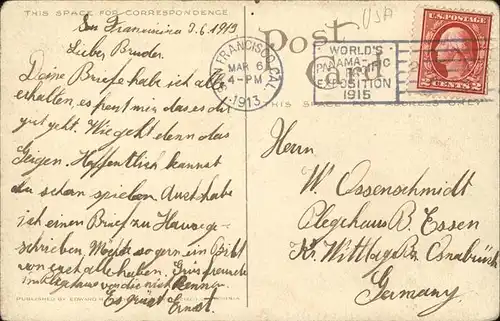 THIS SPACE FOR CORRESPONDENCE
Post Card
USA
SAN FRANCISCO, CAL.
MAR 6
4-PM
1913
WORLD'S
PANAMA-PACIFIC
EXPOSITION
1915
U.S. POSTAGE
2 CENTS 2
THIS SPACE FOR ADDRESS ONLY
San Francisco 3.6.1913
Lieber Bruder.
Deine Briefe habe ich alle
erhalten, es freut mir das es dir
gut geht. Wie geht denn das
Geigen. Hoffentlich kannst
du schon spielen. Auch habe
ich einen Brief zu Hause ge-
schrieben. Möchte so gern ein Bild
von euch alle haben. Grüs freunde
im Plegehaus von die mich kennen.
Es grüst Ernst.
PUBLISHED BY
Herrn
W. Ossenschmidt
Plegehaus B. Essen
Kr. Wittlage Bz. Osnabrück
Germany.